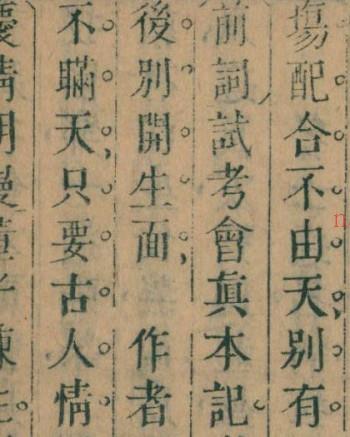 塲配合不由天別有
前詞試考會眞本記
後別開生面　作者
不瞞天只要古人情